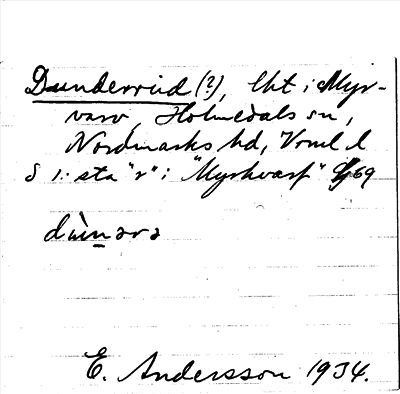 Dunderrud (?), lht i Myr-
varv, Holmedals sn,
Nordmarks hd, Vrml l
S 1:sta "r" i "Myrhvarf" 69
dùnərə
E. Andersson 1934.